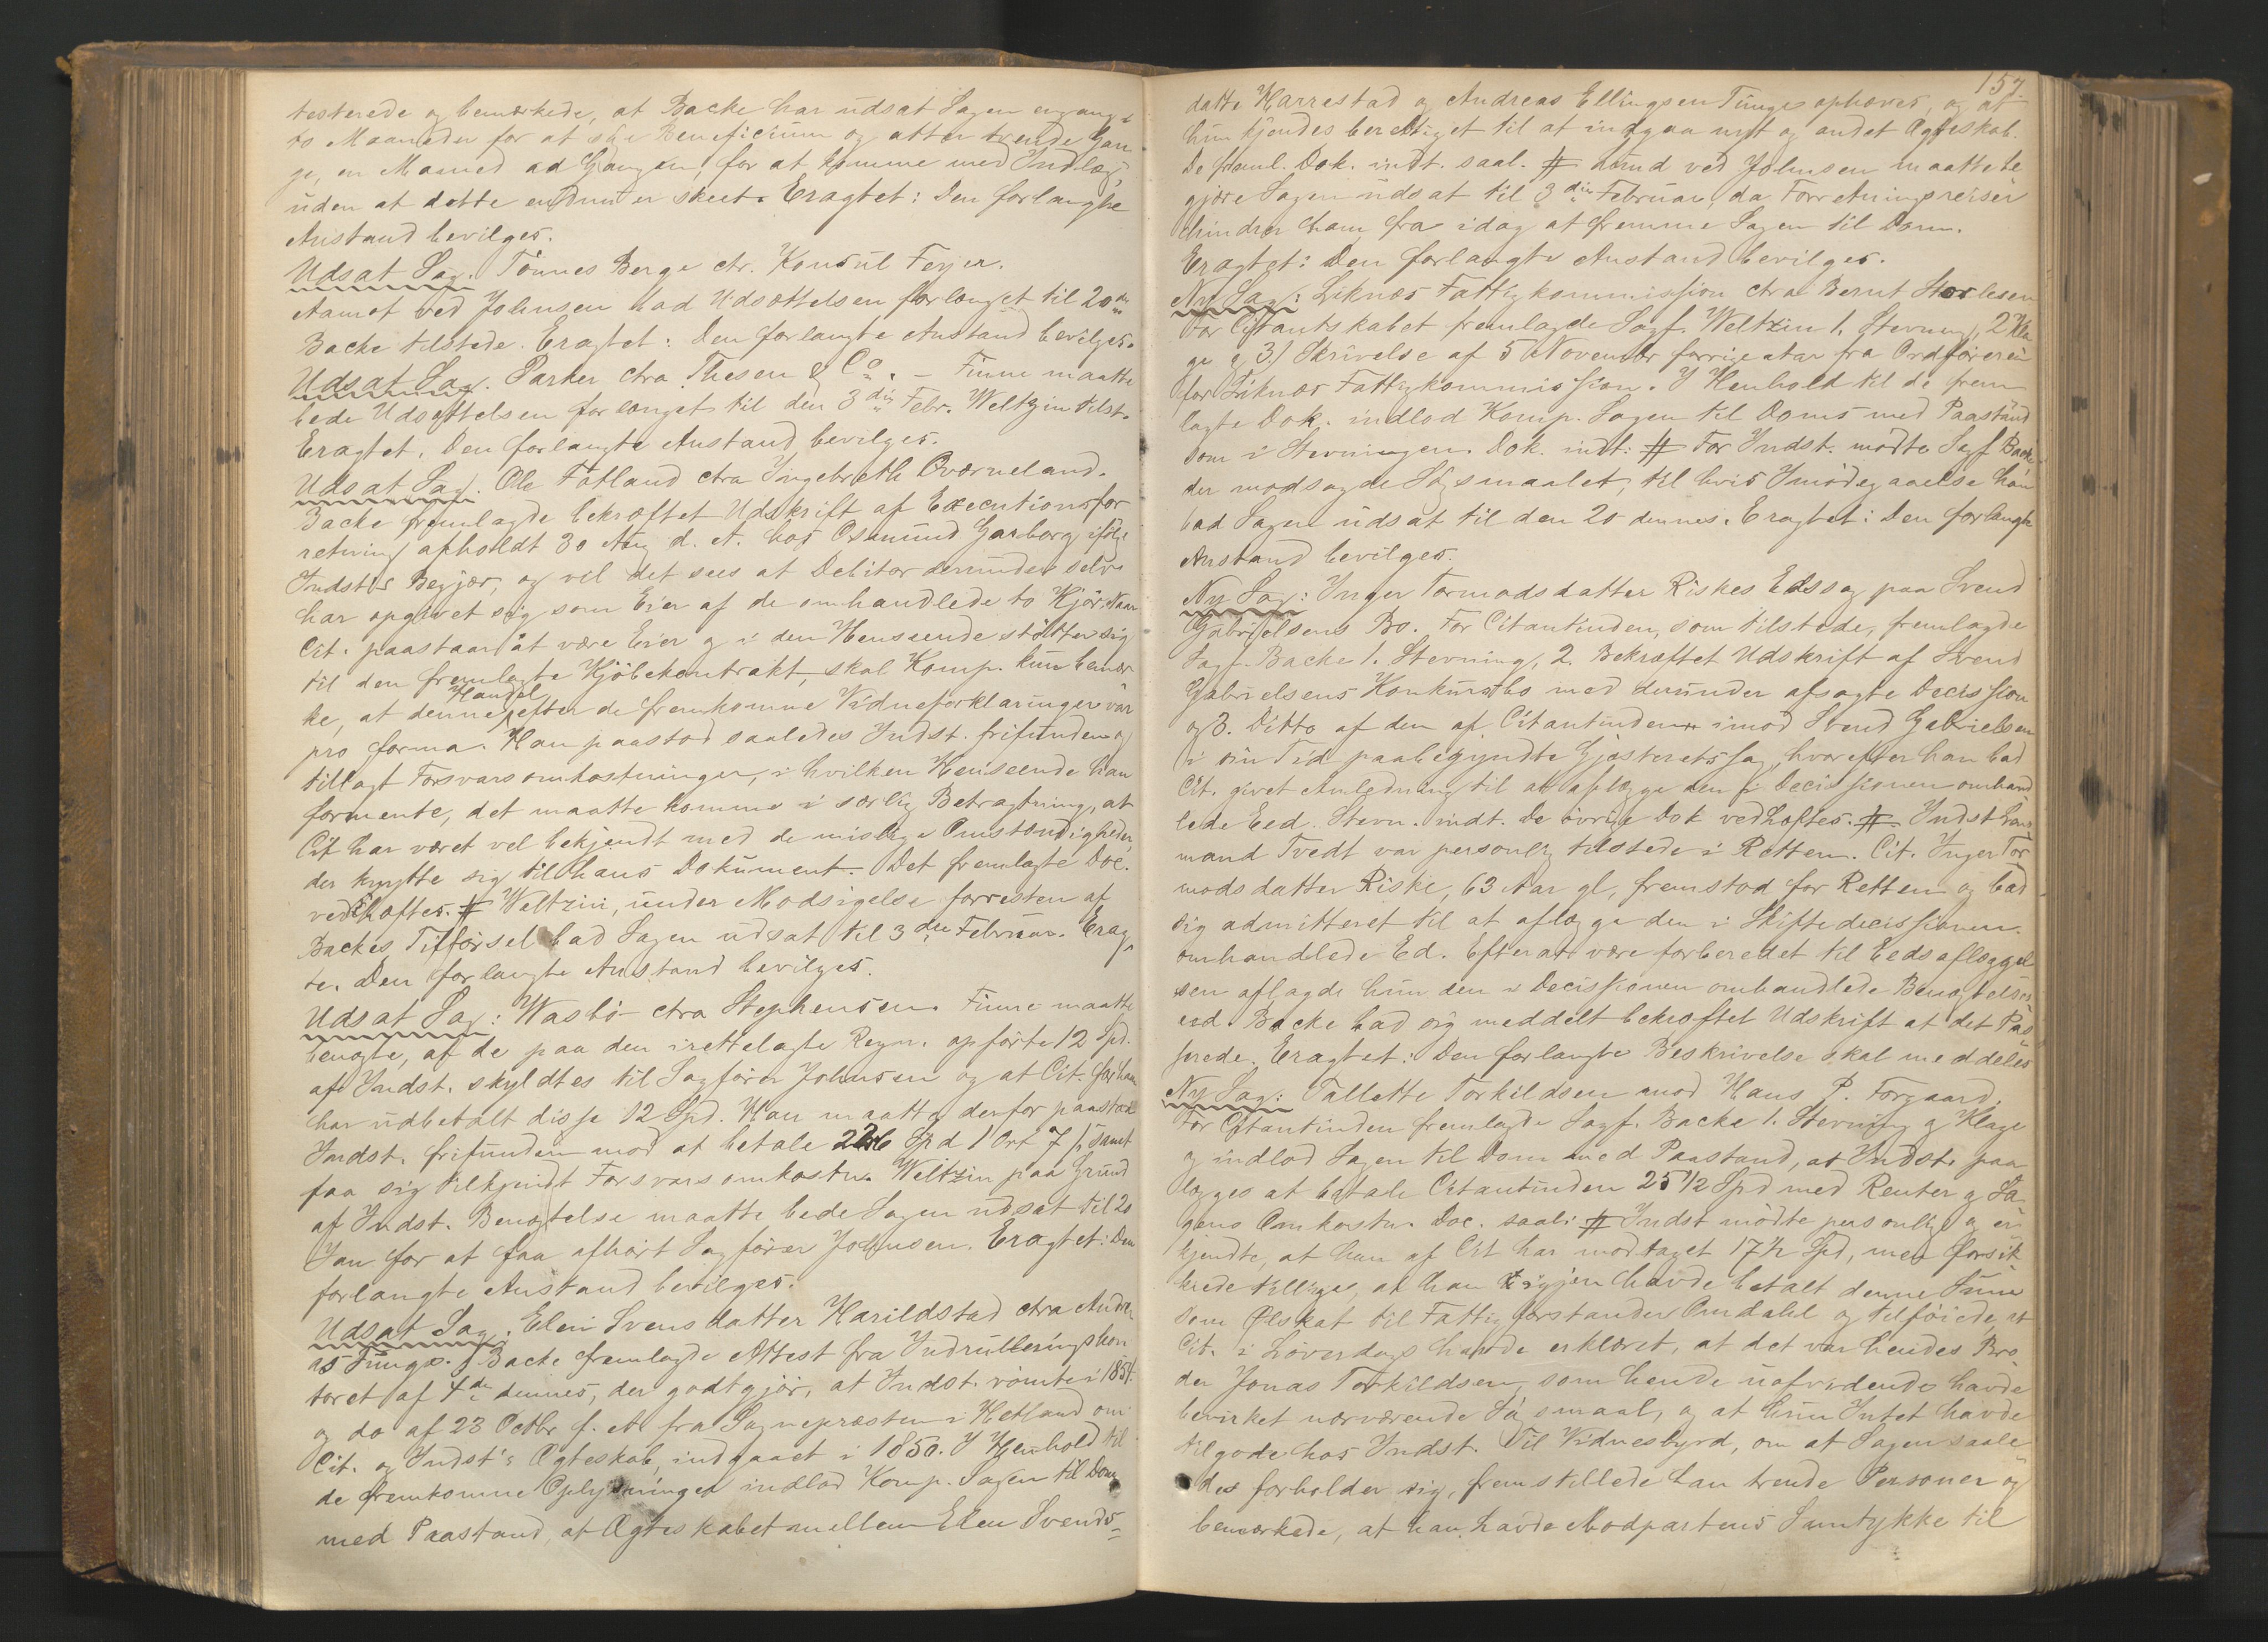 testerede og bemærkede, at Backe har udsat Sagen engang i
to Maaneder for at søge Beneficium og atter trende Gan
ge, en Maaned ad Gangen, for at komme med Indlæg,
uden at dette endnu er skeet. Eragtet: Den forlangte
Anstand bevilges.
Udsat Sag. Tönnes Berge ctr. Konsul Feyer.
Aamot ved Johnsen bad Udsættelsen forlænget til 20de
Backe tilstede. Eragtet: Den forlangte Anstand bevilges.
Udsat Sag. Parker ctra Thesen & Co. - Finne maatte
bede Udsættelsen forlænget til den 3die Febr. Weltzin tilst.
Eragtet. Den forlangte Anstand bevilges.
Udsat Sag. Ole Fotland ctra Ingebreth Qværneland.
Backe fremlagde bekræftet Udskrift af Executionsfor
retning afholdt 30 Aug d. A. hos Osmund Garborg ifølge
Indst's Begjær, og vil det sees at Debitor derunder selv
har opgivet sig som Eier af de omhandlede to Kjör. Naar
Cit. paastaar at være Eier og i den Henseende støtter sig
til den fremlagte Kjöbekontrakt, skal Komp. kun bemær
ke, at denne Handel efter de fremkomne Vidneforklaringer var
pro forma. Han paastod saaledes Indst. frifunden og
tillagt Forsvarsomkostninger, i hvilken Henseende han
formente, det maatte komme i særlig Betragtning, at
Cit har været vel bekjendt med de mislige Omstændigheder,
der knytte sig til hans Dokument. Det fremlagte Doc.
vedhæftes. # Weltzin, under Modsigelse forresten af
Backes Tilförsel bad Sagen udsat til 3die Februar. Erag
te. Den forlangte Anstand bevilges.
Udsat Sag: Wasbö ctra Stephensen. Finne maatte
benægte, at de paa den irettelagte Regn. opförte 12 Spd.
af Indst. skyldtes til Sagförer Johnsen og at Cit. for ham
har udbetalt disse 12 Spd. Han maatte derfor paastaa
Indst. frifunden mod at betale Spd 1 Ort 7 ß samt
faa sig tilkjendt Forsvarsomkostn. Weltzin paa Grund
af Indst. Benægtelse maatte bede Sagen udsat til 20
Jan for at faa afhört Sagförer Johnsen. Eragtet: Den
forlangte Anstand bevilges.
Udsat Sag. Elen Svensdatter Harildstad ctra Andre
as Tunge. Backe fremlagde Attest fra Indrulleringskon
toret af 4de dennes, der godtgjör, at Indst. römte i 1854.
og do af 23 Octbr f. A fra Sognepræsten i Hetland om
Cit. og Indst's Ægteskab, indgaaet i 1850. I Henhold til
de fremkomne Oplysninger indlod Komp. Sagen til Dom
med Paastand, at Ægteskabet mellem Elen Svends-
157.
datte Harrestad og Andreas Ellingsen Tunge ophæves, og at
hun kjendes berettiget til at indgaa nyt og andet Ægteskab.
De freml. Dok. indt. saal. # ved Johnsen maatte be
gjære Sagen udsat til 3die Februar, da Forretningsreiser
hindrer ham fra idag at fremme Sagen til Dom.
Eragtet: Den forlangte Anstand bevilges.
Ny Sag: Liknæs Fattigkommission ctra Bernt
For Citantskabet fremlagde Sagf. Weltzin 1. Stevning, 2 Kla
ge og 3.) Skrivelse af 5 November forrige Aar fra Ordföreren
for Liknæs Fattigkommission. I Henhold til de frem
lagte Dok. indlod Komp. Sagen til Doms med Paastand
som i Stevningen. Dok. indt: # For Indst. mödte Sagf Backe
der modsagde Sögsmaalet, til hvis Imödegaaelse han
bad Sagen udsat til den 20 dennes. Eragtet: Den forlangte
Anstand bevilges.
Ny Sag: Inger Tormodsdatter Riskes Edssag paa Svend
Gabrielsens Bo. For Citantinden, som tilstede, fremlagde
Sagf. Backe 1. Stevning, 2. Bekræftet Udskrift af Svend
Gabrielsens Konkursbo med derunder afsagte Decission
og 3. Ditto af den af Citantinden imod Svend Gabrielsen
i sin Tid paabegyndte Gjæsteretssag, hvorefter han bad
Cit. givet Anledning til at aflægge den i Decissionen omhand
lede Eed. Stevn. indt. De övrige Dok vedhæftes. # Indst
mand Tvedt var personlig tilstede i Retten. Cit. Inger Tor
modsdatter Riske, 63 Aar gl, fremstod for Retten og bad
sig admitteret til at aflægge den i Skiftedecissionen
omhandlede Ed. Efter at være forberedet til Eedsaflæggel
sen aflagde hun den i Decissionen omhandlede Benægtelses
eed. Backe bad sig meddelt bekræftet Udskrift at det Pas
serede. Eragtet: Den forlangte Beskrivelse skal meddeles
Ny Sag: Tallette Torkildsen mod Hans P. Forgaard.
For Citantinden fremlagde Sagf. Backe 1. Stevning og Klage
og indlod Sagen til Dom med Paastand, at Indst. paa
lægges at betale Citantinden 25 1/2 Spd med Renter og Sa
gens Omkostn. Doc. saal: # Indst mödte personlig og er
kjendte, at han af Cit har modtaget 17 1/2 Spd, men forsik
krede tillige, at han havde betalt denne Sum
som Ølskat til Fattigforstander Omdahl og tilföiede, at
Cit. i Löverdags havde erklæret, at det var hendes Bro
der Jonas Torkildsen, som hende uafvidende havde
bevirket nærværende Sögsmaal, og at hun Intet havde
tilgode hos Indst. Til Vidnesbyrd, om at Sagen saale
des forholder sig, fremstillede han trende Personer og
bemærkede, at han havde Modpartens Samtykke til